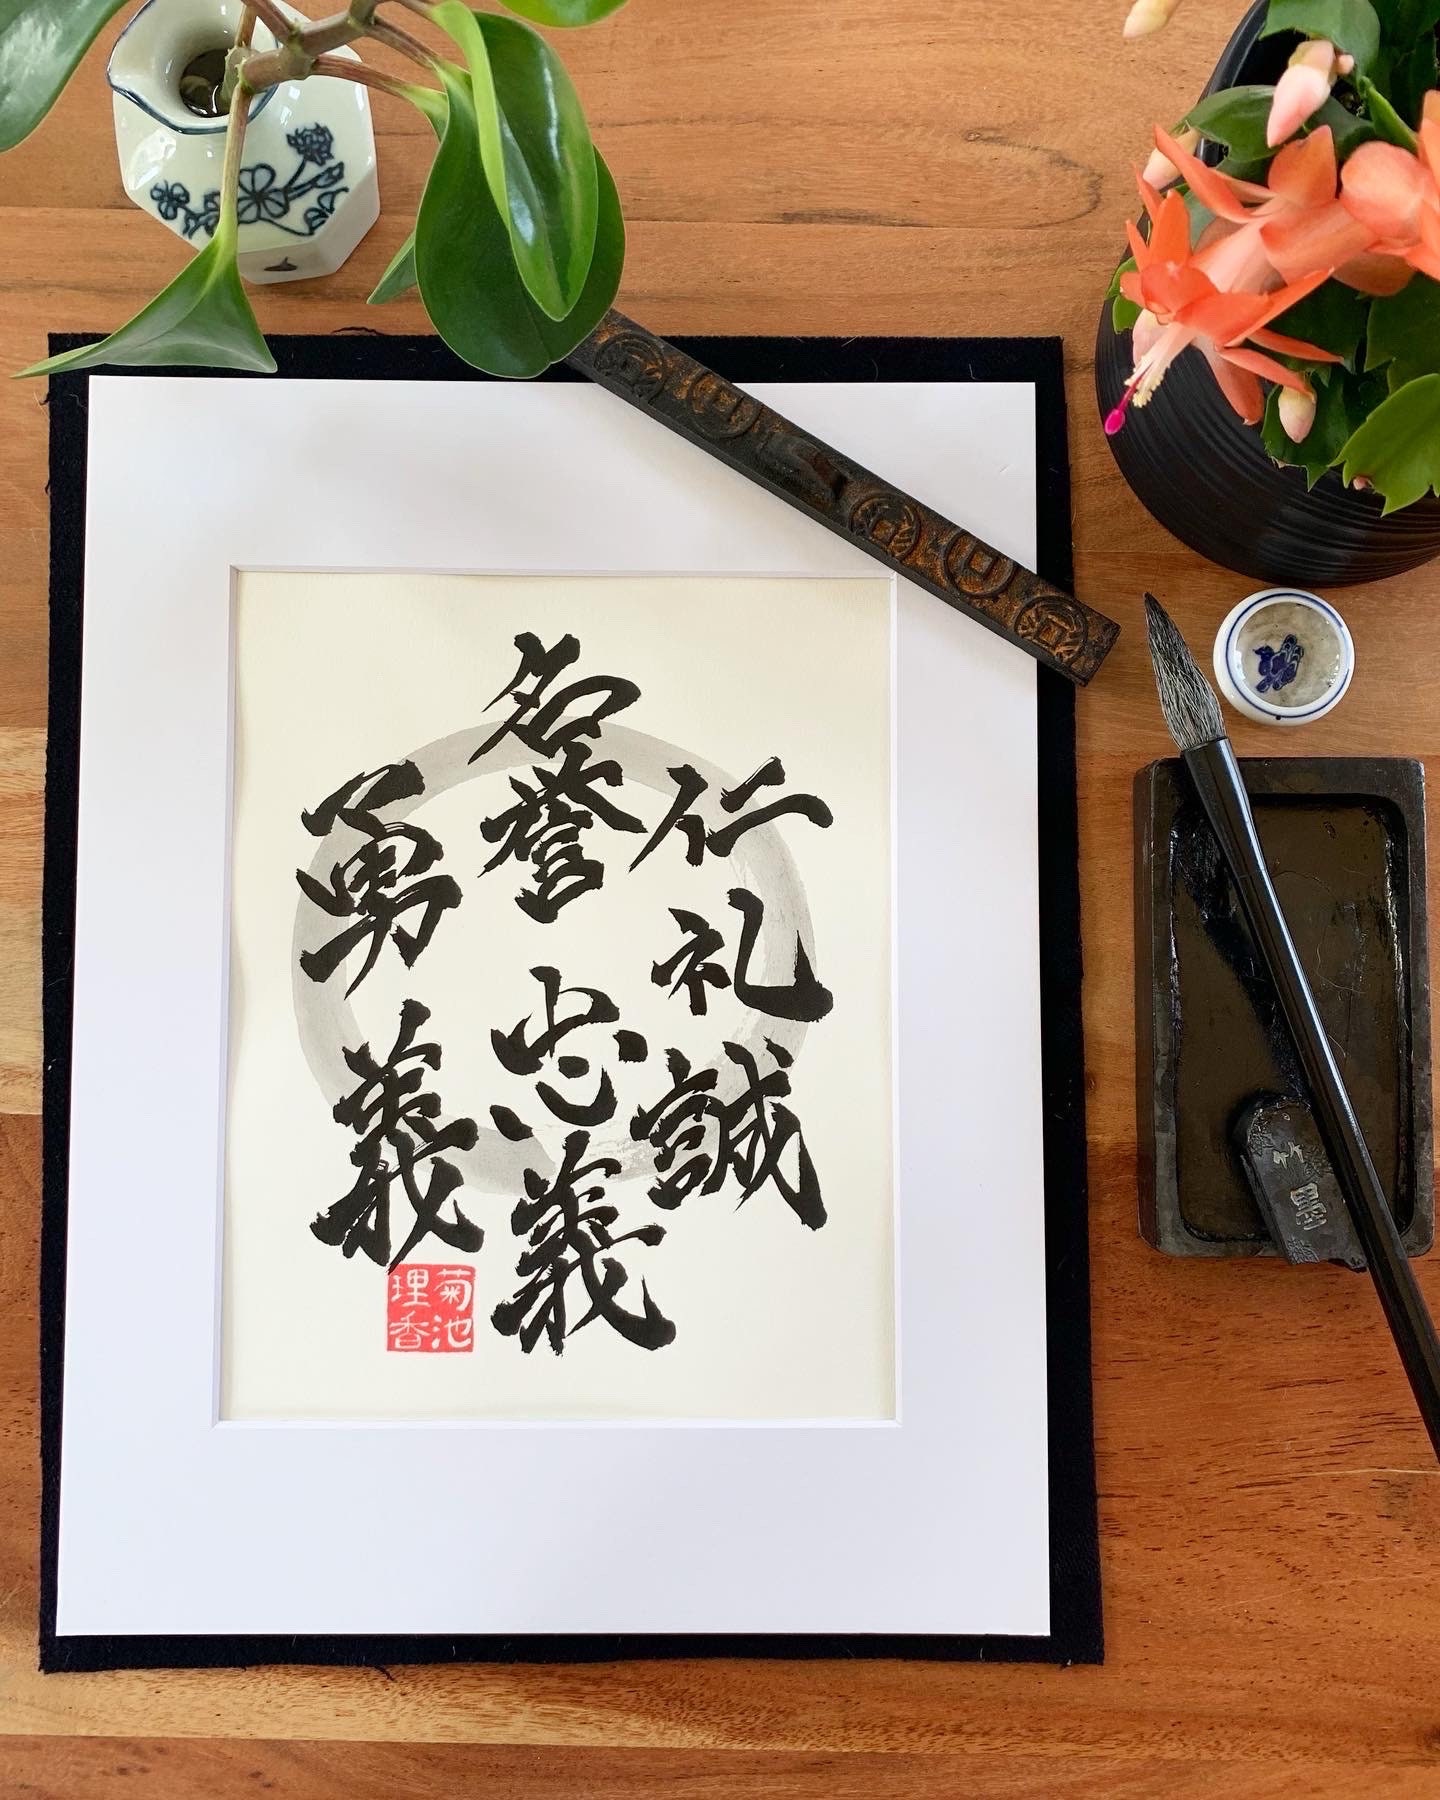 仁礼誠
名誉忠義
勇義
菊池
理香
墨